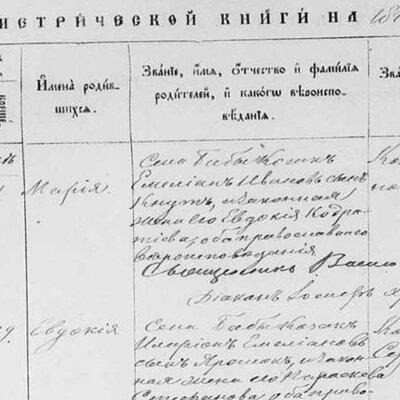 МЕТРИЧЕСКОЙ КНИГИ НА 18
Имена родив-
шихся.
Званіе, имя, отчество и фамилія
родителей, и какогѡ вѣроиспо-
вѣданія.
Зва
Марія.
Села Бабы Козакъ
Емеліан Ивановъ сынъ
Кнутъ, и законная
жена его Евдокія Кодра-
тіева, оба православнаго
вѣроисповеданія
Священникъ Васил
Діаконъ
Евдокія
Села Бабы Козакъ
Иларіон Емеліановъ
сынъ и закон-
ная жена его Параскева
Стефанова оба право-